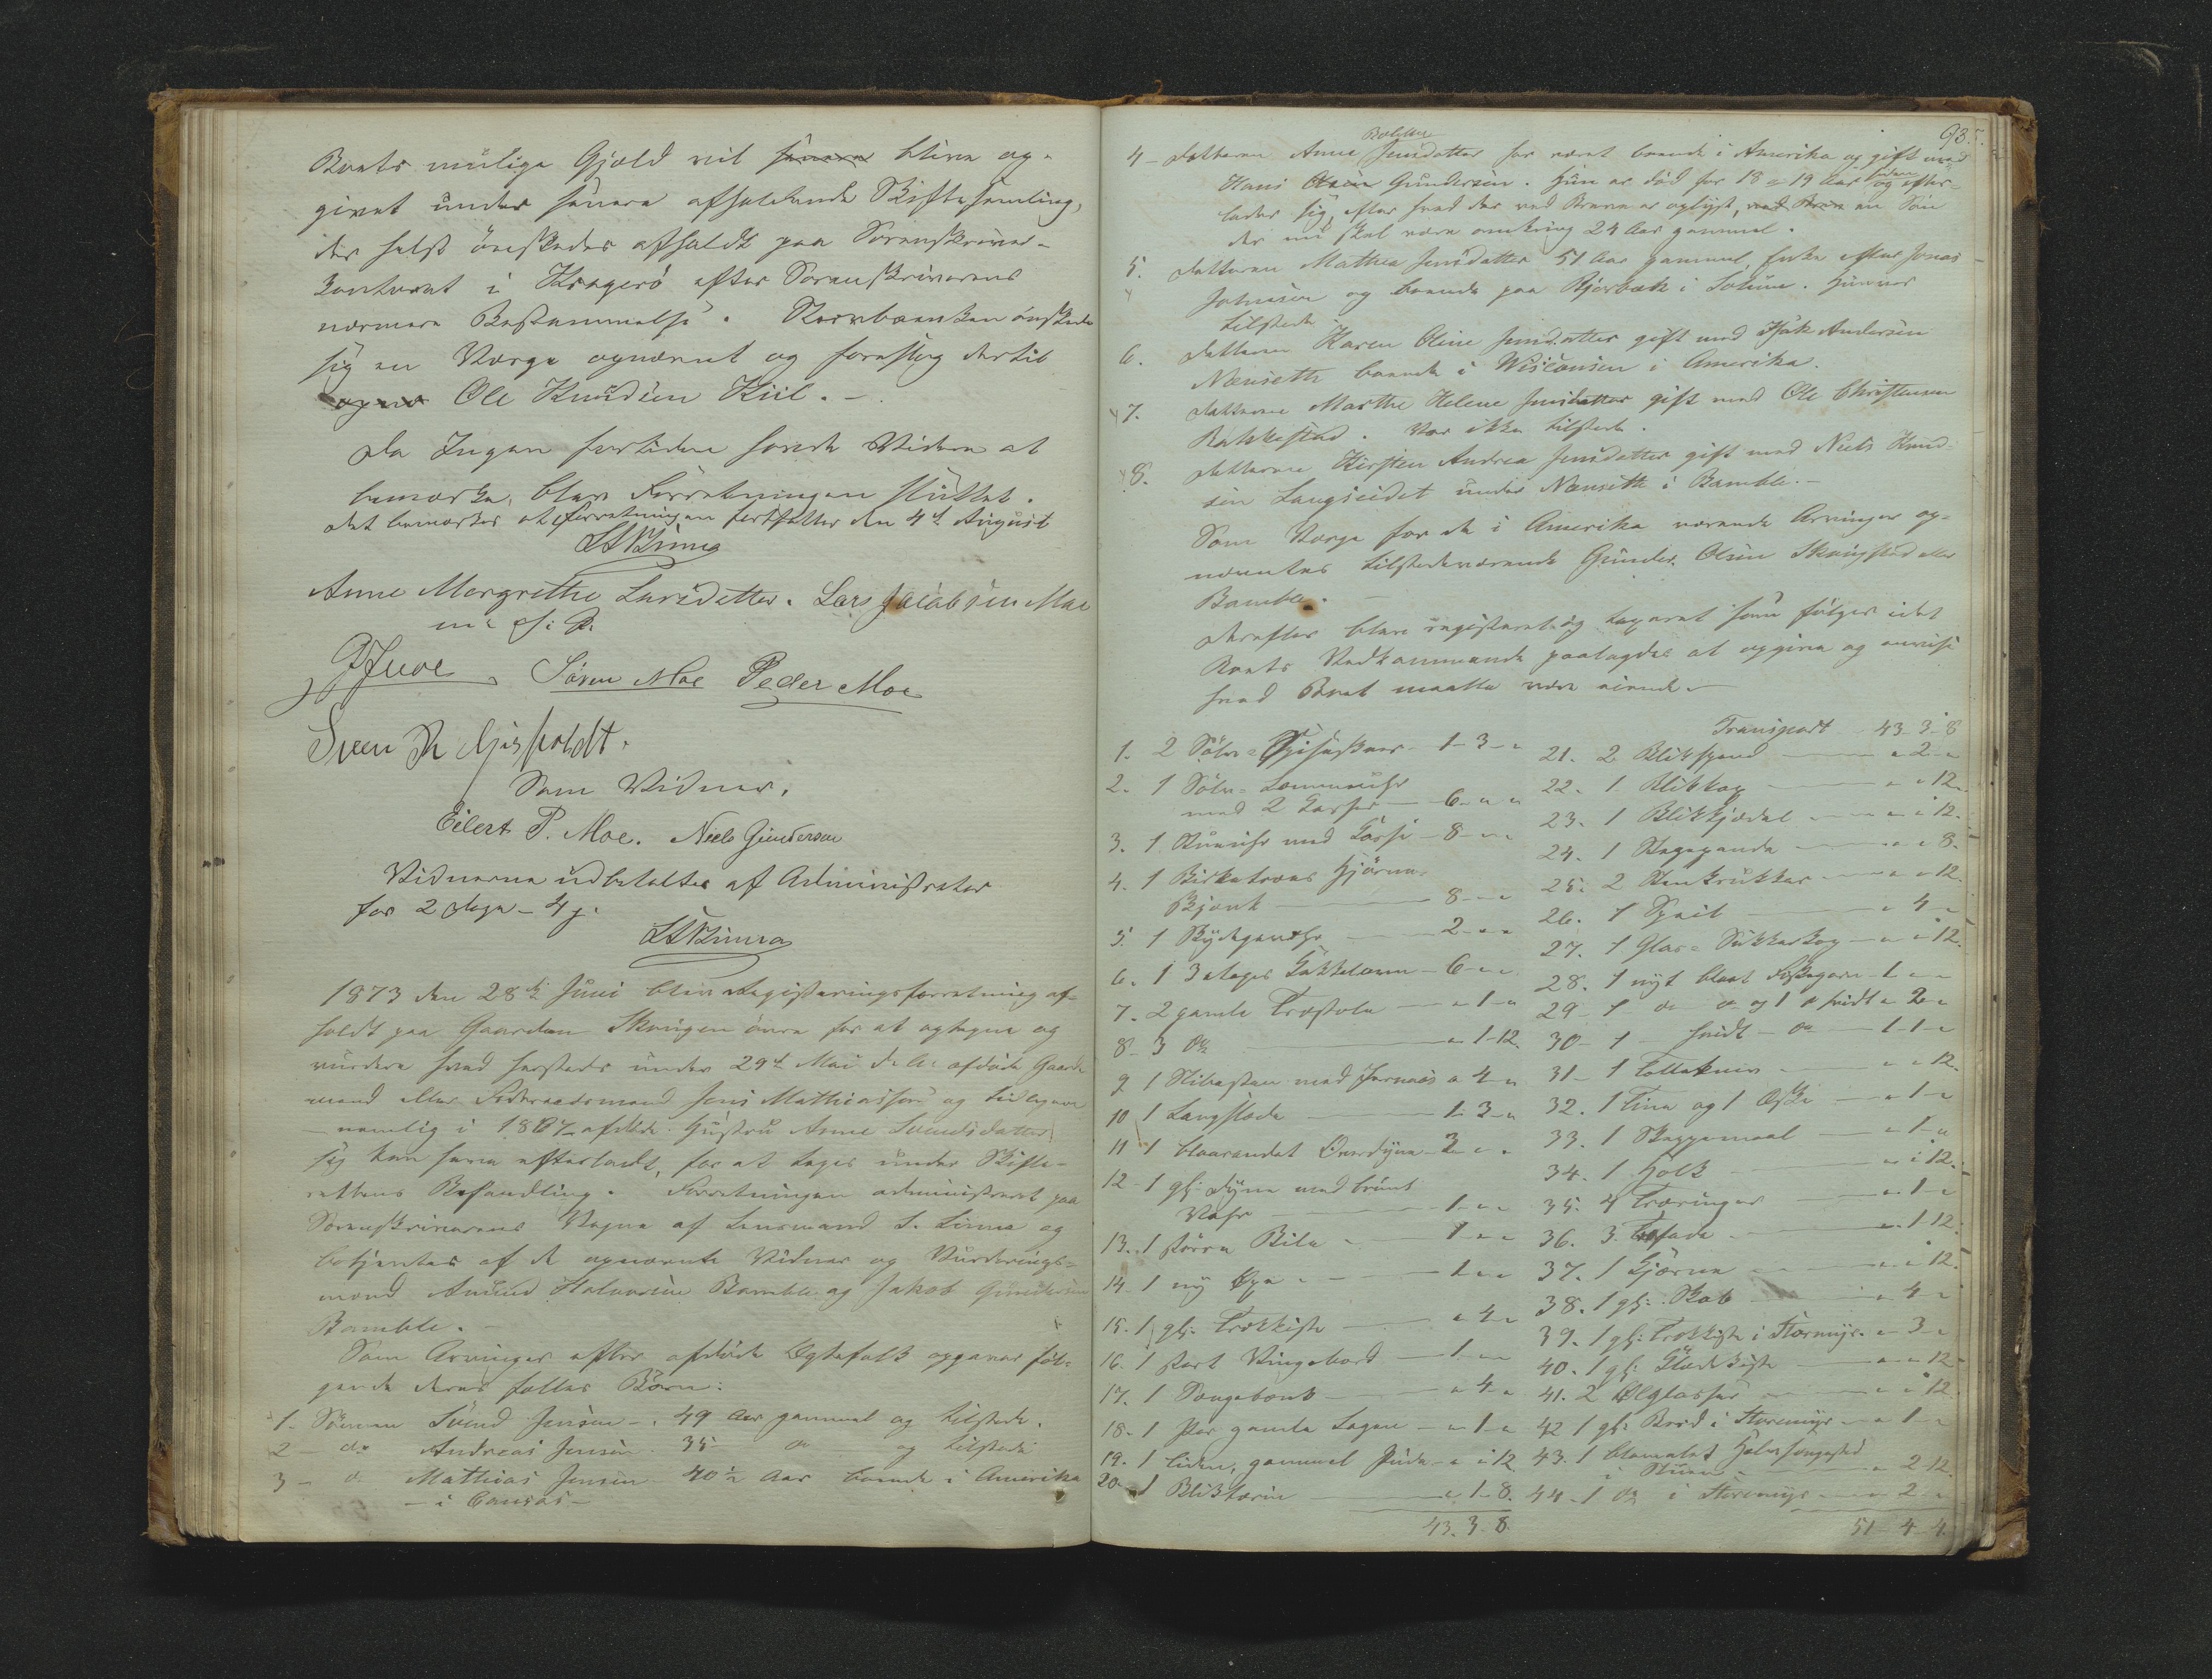 Boets mulige Gjeld vil senere blive op-
givet under senere afholdende Skiftesamling,
der helst önskedes afholdt paa Sorenskriver-
kontoret i Kragerö efter Sorenskriverens
nærmere Bestemmelse. önskede
sig en Værge opnævnt og foreslog dertil
Ole Knudsen Kiil.
Da Ingen fortiden havde Videre at
bemærke, blev Forretningen sluttet.
Det bemærkes at forretningen fortsattes den 4d August
Anne Margrethe Larsdatter. Lars Jacobsen Moe
m. f. P.
Sören Moe Peder Moe
Som Vidner,
Eilert P. Moe. Niels Gundersen
Vidnerne udbetaltes af Administrator
for 2 Dage - 4
1873 den 28de Juni blev Registeringsforretning af-
holdt paa Gaarden Skougen övre for at optegne og
vurdere hvad hersteds under 29d Mai d. A. afdöde Gaard-
mand eller Föderaadsmand Jens Mathiassen og tidligere
- nemlig i 1867 afdöde Hustru Anne Svendsdatter
sig kan have efterladt, for at tages under Skifte-
rettens Behandling. Forretningen administreret paa
Sorenskriverens Vegne af Lensmand S. Linna og
betjentes af de opnævnte Vidner og Vurderings-
mænd Halvorsen Bamble og Jakob Gundersen
Bamble.
Som Arvinger efter afdöde Egtefolk opgaves föl-
gende deres fælles Börn:
1. Sönnen Svend Jensen - 49 Aar gammel og tilstede.
2 - do Andreas Jensen. 35 do og tilstede
3 - do Mathias Jensen 40½ Aar boende i Amerika
- i Cansas -
93.
4 - Datteren Anne Jensdatter har været boende i Amerika og gift med
Hans Olsen Gundersen. Hun er död for 18 a 19 Aar siden og efter-
lader sig, efter hvad der ved Brevo er oplyst, en Sön
der nu skal være omkring 24 Aar gammel.
5. Datteren Mathea Jensdatter 51 Aar gammel, Enke efter Jonas
Johnsen og boende paa Bjerbæk i Solum. Hun var
tilstede.
6. Datteren Karen Oline Jensdatter gift med Isak Andersen
Nænseth boende i Wisconsin i Amerika.
7. Datteren Marthe Helene Jensdatter gift med Ole Christensen
Rakkestad. Var ikke tilstede.
8. Datteren Kirsten Andrea Jensdatter gift med Niels Knud-
sen Langseidet under Nænseth i Bamble.
Som Værge for de i Amerika værende Arvinger op-
nævntes tilstedeværende Gunder Olsen
Bamble.
Derefter blev registeret og taxeret som fölger idet
Boets Vedkommende paalagdes at opgive og anvise
hvad Boet maatte være eiende.
1. 2 Sölv-Spiseskeer 1-3-"
2. 1 Sölv-Lommeuhr
med 2 Kasser - 6-"-"
3. 1 Stueuhr med Kasse - 8-"-"
4. 1 Birketræes Hjörne-
Skjænk - 8-"-"
5. 1 2-"-"
6. 1 3 etages Kakkelovn - 6-"-"
7. 2 gamle Træstole - "-1-"
8. 3 do - "-1-12.
9. 1 Slibesten med "-4-"
10. 1 Langslæde 1-3-"
11. 1 blaarandet Overdyne
12. 1 gl: Dyne med brunt
Vahr - 1-"-"
13. 1 större Bile - 1-"-"
14. 1 ny Öxe - 1-"-"
15. 1 gl: Trækkiste - "-4-"
16. 1 stort Vingebord - 1-"-"
17. 1 Sengebænk - "-4-"
18. 1 Par gamle Lagen - "-1-"
19. 1 liden, gammel Pude - "-"-12
20. 1 Bliktærin - "-1-8.
43. 3. 8.
Transport 43-3-8
21. 2 Blikspand - "-2-"
22. 1 Blikkop - "-"-12.
23. 1 Blikkjedel - "-"-12.
24. 1 Stegepande - "-"-8.
25. 2 Stenkrukker - "-"-12.
26. 1 Speil - "-4-"
27. 1 Glas-Sukkerkop - "-"-12.
28. 1 nyt blaat Fiskegarn - 1-"-"
29 - 1 do do og 1 do hvidt - 2-"
30 - 1 - hvidt - do - 1-1-"
31 - 1 Tolleknive - "-"-12.
32. 1 Tine og 1 Æske - "-1-"
33. 1 Skjeppemaal - "-1-"
34. 1 Holk - "-"-12.
35. 4 Træringer - "-1-"
36. 3 Træfade - "-1-12.
37. 1 Kjærne - "-"-12.
38. 1 gl: Skab - "-4-"
39. 1 gl: Trækkiste i Stormyr. - "-3-"
40. 1 gl: - "-"-12
41. 2 Ölglasser - "-"-12
42. 1 gl: Bord i Stormyr - "-1-"
43. 1 blaamalet
i Stuen - "-2-12.
44 - 1 do i Stormyr - "-2-"
51 4 4.